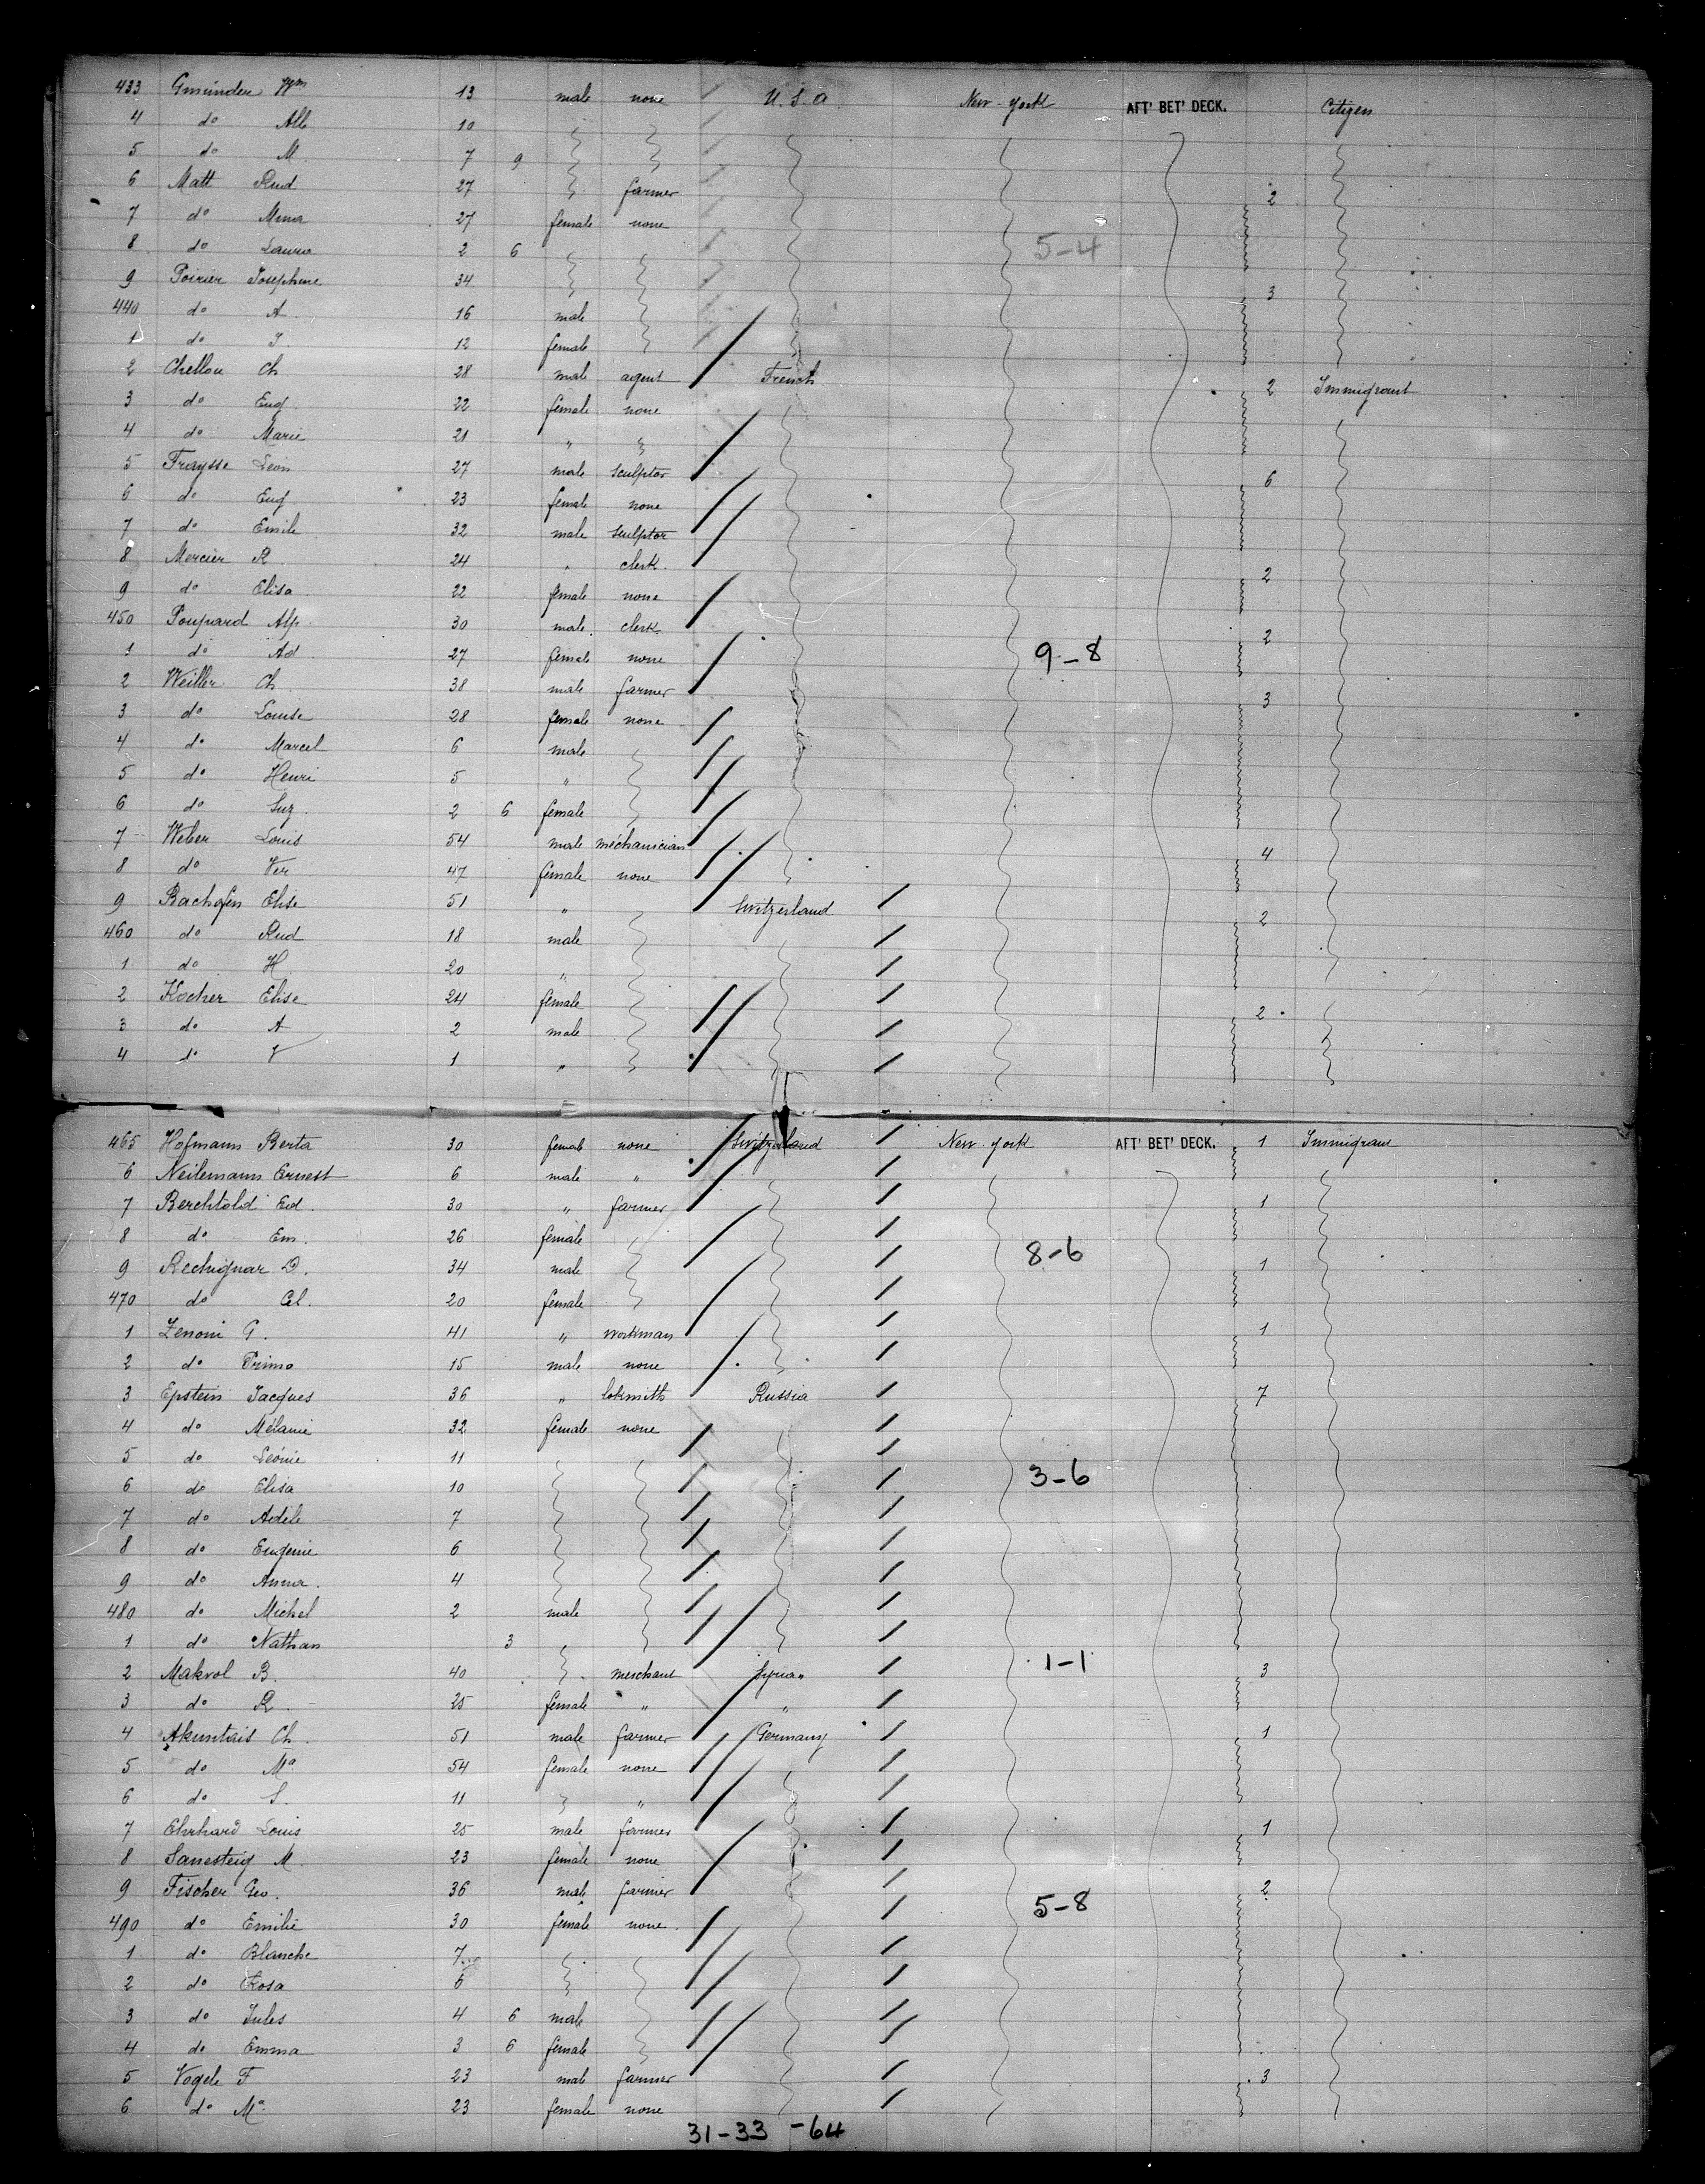 433 Gmeinder Wm 13 male none U.S.A. New-York AFT' BET' DECK. Citizen
4 do Alb 10
5 do M 7 9
6 Matt Rud 27 farmer 2
7 do Mina 27 female none
8 do Laura 2 6 5-4
9 Poirier Josephine 34 3
440 do A. 16 male
1 do J 12 female
2 Chellou Ch 28 male agent French 2 Immigrant
3 do Eug. 22 female none
4 do Marie 21 " "
5 Fraysse Leon 27 male sculptor 6
6 do Eug 23 female none
7 do Emile 32 male sculptor
8 Mercier R. 24 " clerk. 2
9 do Elisa 22 female none
450 Poupard Alp. 30 male. clerk 2
1 do Ad 27 female none 9-8
2 Weiller Ch 38 male farmer 3
3 do Louise 28 female none
4 do Marcel 6 male
5 do Henri 5 "
6 do Suz. 2 6 female
7 Weber Louis 54 male méchanician 4
8 do Ver 47 female none
9 Bachofen Elise 51 " Switzerland 2
460 do Rud 18 male
1 do H 20 "
2 Kocher Elise 24 female 2
3 do A 2 male
4 do V 1 "
465 Hofmann Berta 30 female none Switzerland New-York AFT' BET' DECK. 1 Immigrant
6 Neilemann Ernest 6 male "
7 Berchtold Ed. 30 " farmer 1
8 do Em. 26 female
9 Rechignar D. 34 male 8-6 1
470 do Cel. 20 female
1 Zenoni G. 41 " workman 1
2 do Primo 15 male none
3 Epstein Jacques 36 " lokmith Russia 7
4 do Mélanie 32 female none
5 do Léonie 11
6 do Elisa 10 3-6
7 do Adèle 7
8 do Eugenie 6
9 do Anna. 4
480 do Michel 2 male
1 do Nathan 3
2 Makvol B. 40 merchant Syria 1-1 3
3 do R. 25 female " "
4 Akuntais Ch. 51 male farmer Germany 1
5 do Ma 54 female none
6 do S. 11 "
7 Ehrhard Louis 25 male farmer 1
8 Sanesteig M. 23 female none
9 Fischer Geo. 36 male farmer 2
490 do Emilie 30 female none. 5-8
1 do Blanche 7
2 do Rosa 6
3 do Jules 4 6 male
4 do Emma 3 6 female
5 Vogele F 23 male farmer 3
6 do Ma 23 female none
31-33 -64